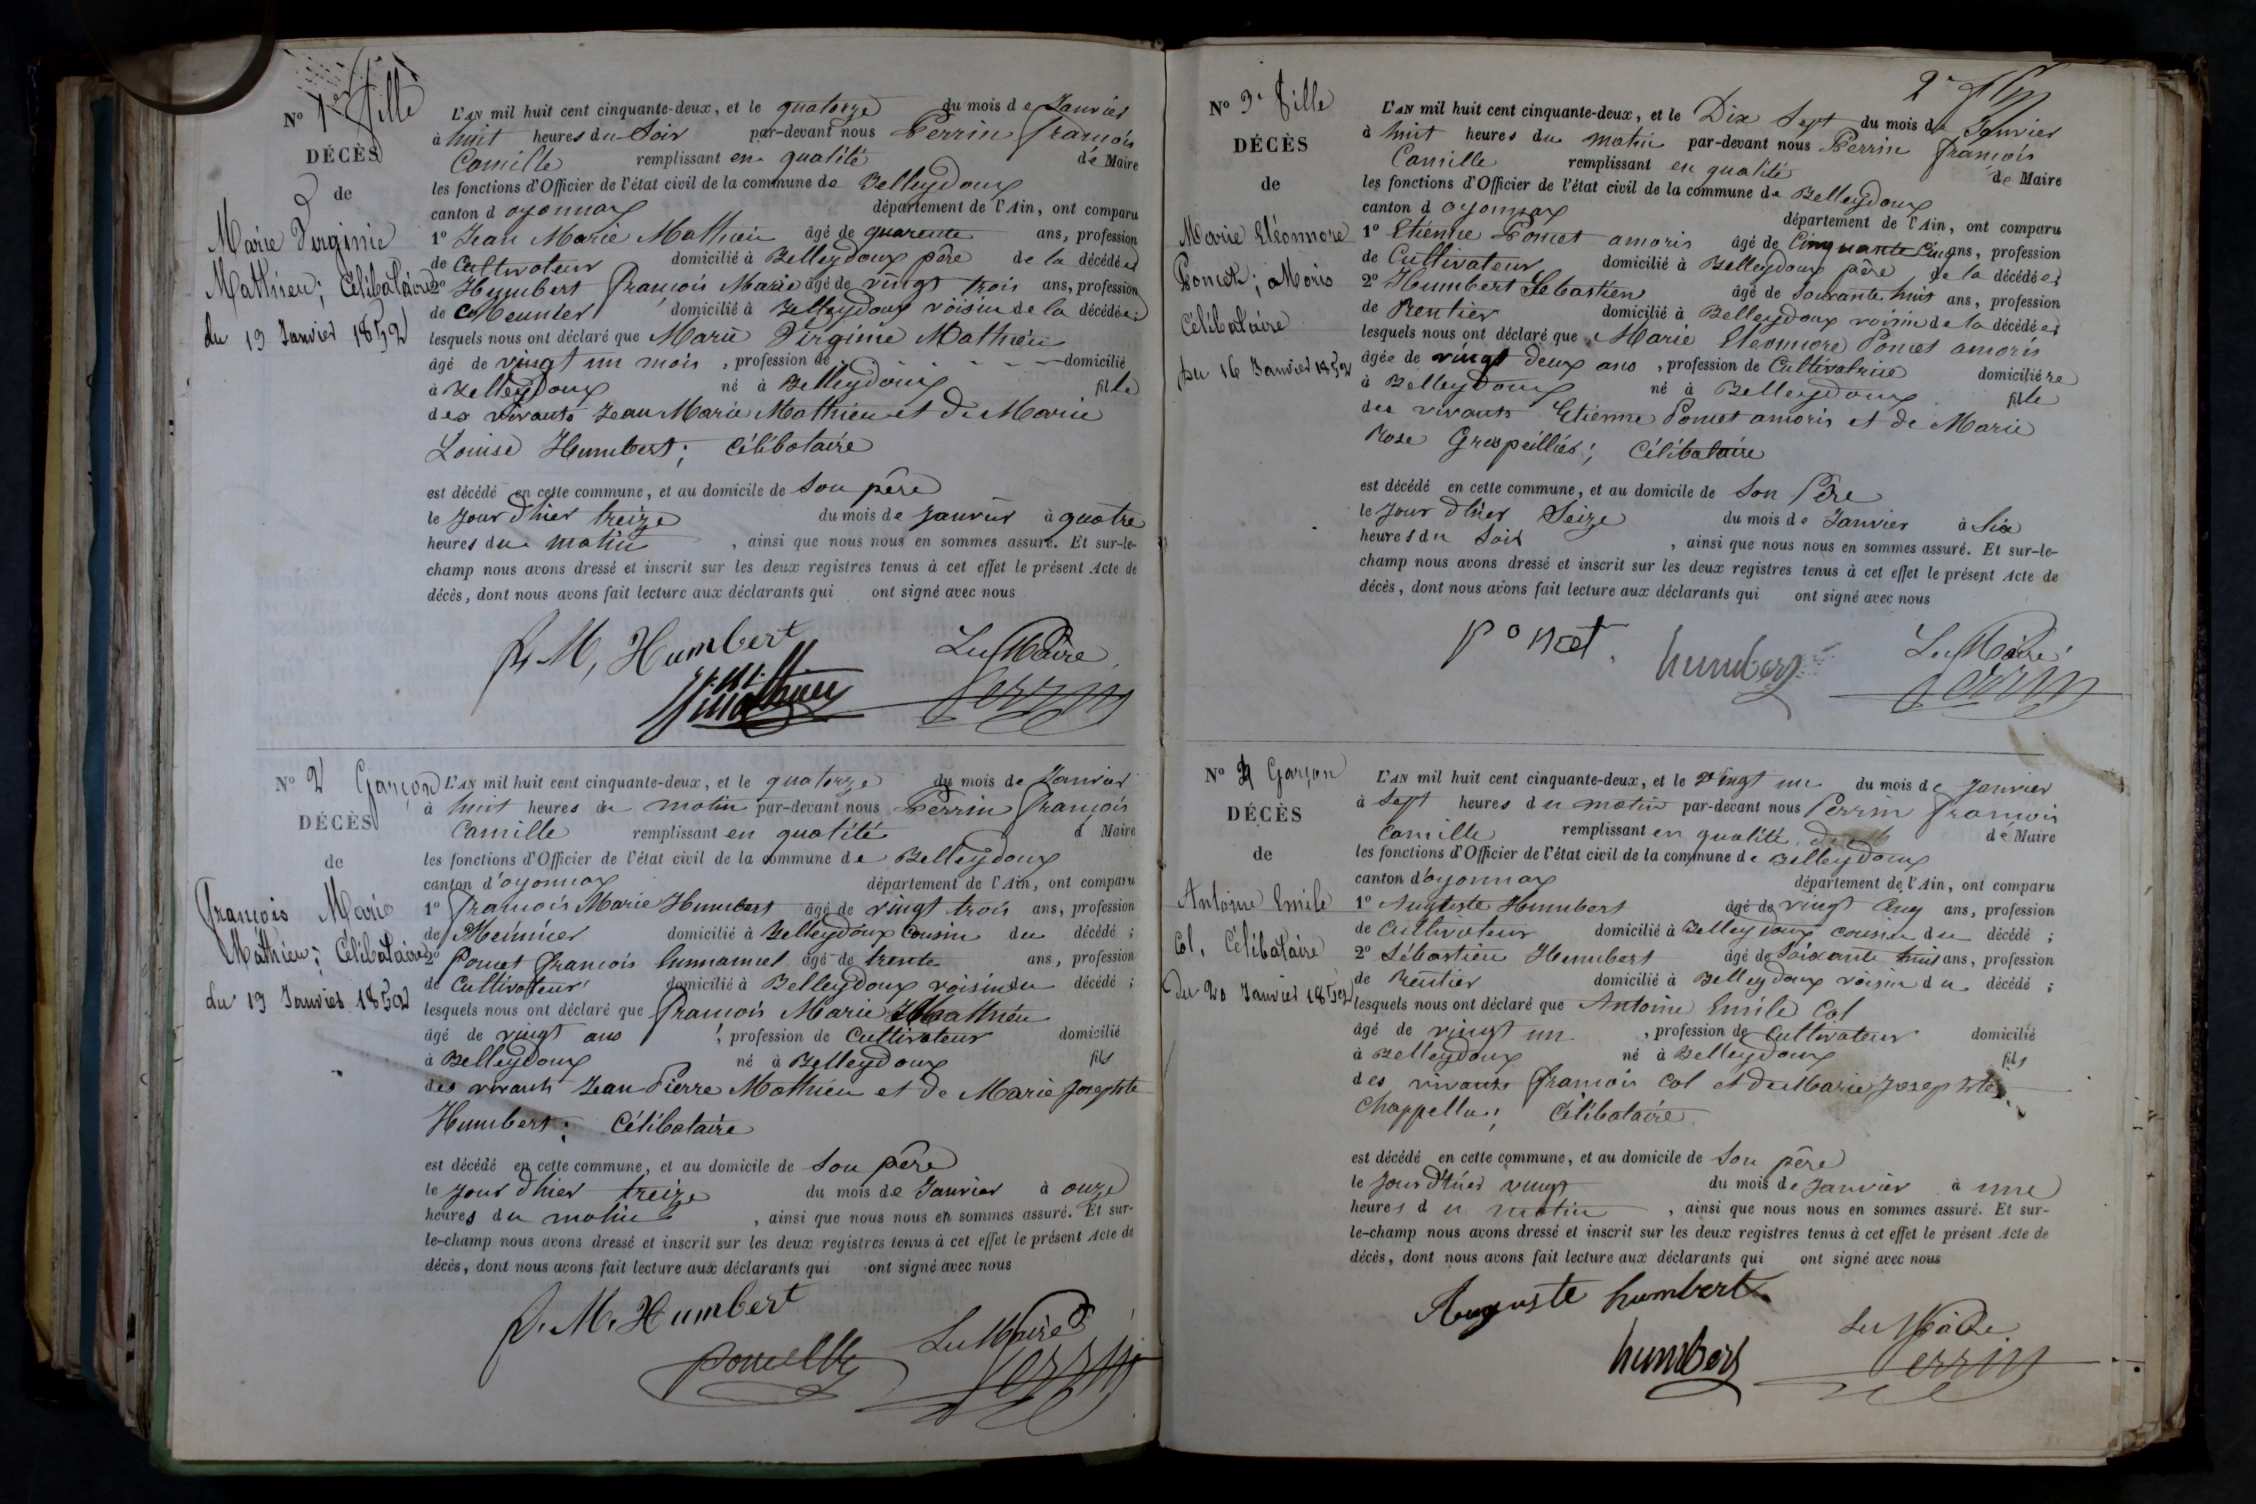 N° 1er fille
DÉCÈS
de
Marie Virginie
Mathieu; Célibataire
du 13 Janvier 1852
L'AN mil huit cent cinquante-deux, et le quatorze du mois de Janvier
à huit heures du Soir par-devant nous Perrin françois
Camille remplissant en qualité de Maire
les fonctions d'Officier de l'état civil de la commune de Belleydoux
canton d oyonnax département de l'Ain, ont comparu
1° Jean Marie Mathieu âgé de quarente ans, profession
de Cultivateur domicilié à Belleydoux père de la décédée;
2° Humbert françois Marie âgé de vingt trois ans, profession
de Meunier domicilié à Belleydoux voisin de la décédée;
lesquels nous ont déclaré que Marie Virginie Mathieu
âgé de vingt un mois, profession de domicilié
à Belleydoux né à Belleydoux fille
des vivants Jean Marie Mathieu et de Marie
Louise Humbert; Célibataire
est décédé en cette commune, et au domicile de Son père
le jour d'hier treize du mois de janvier à quatre
heures du matin, ainsi que nous nous en sommes assuré. Et sur-le-
champ nous avons dressé et inscrit sur les deux registres tenus à cet effet le présent Acte de
décès, dont nous avons fait lecture aux déclarants qui ont signé avec nous
f. M, Humbert Le Maire
j. m. mathieu Perrin
N° 2 Garçon
DÉCÈS
de
françois Marie
Mathieu; Célibataire
du 13 Janvier 1852
L'AN mil huit cent cinquante-deux, et le quatorze du mois de Janvier
à huit heures du matin par-devant nous Perrin françois
Camille remplissant en qualité d Maire
les fonctions d'Officier de l'état civil de la commune de Belleydoux
canton d'oyonnax département de l'Ain, ont comparu
1° françois Marie Humbert âgé de vingt trois ans, profession
de Meunier domicilié à Belleydoux Cousin du décédé;
2° Poncet françois âgé de trente ans, profession
de Cultivateur domicilié à Belleydoux voisin du décédé;
lesquels nous ont déclaré que françois Marie Mathieu
âgé de vingt ans, profession de Cultivateur domicilié
à Belleydoux né à Belleydoux fils
des vivants Jean Pierre Mathieu et de Marie Josephte
Humbert; Célibataire
est décédé en cette commune, et au domicile de Son père
le jour d'hier treize du mois de Janvier à onze
heures du matin, ainsi que nous nous en sommes assuré. Et sur-
le-champ nous avons dressé et inscrit sur les deux registres tenus à cet effet le présent Acte de
décès, dont nous avons fait lecture aux déclarants qui ont signé avec nous
f. M. Humbert Le Maire
Perrin
2e
N° 3e fille
DÉCÈS
de
Marie Eléonnore
Poncet; amoris
Célibataire
du 16 Janvier 1852
L'AN mil huit cent cinquante-deux, et le Dix Sept du mois de Janvier
à huit heures du matin par-devant nous Perrin françois
Camille remplissant en qualité de Maire
les fonctions d'Officier de l'état civil de la commune de Belleydoux
canton d oyonnax département de l'Ain, ont comparu
1° Etienne Poncet amoris âgé de Cinquante Cinq ans, profession
de Cultivateur domicilié à Belleydoux père de la décédée;
2° Humbert Sébastien âgé de soixante huit ans, profession
de Rentier domicilié à Belleydoux voisin de la décédée;
lesquels nous ont déclaré que Marie Eléonnore Poncet amoris
âgée de vingt deux ans, profession de Cultivatrice domiciliére
à Belleydoux né à Belleydoux fille
des vivants Etienne Poncet amoris et de Marie
Rose Grospeilliés; Célibataire
est décédé en cette commune, et au domicile de Son Père
le jour d'hier Seize du mois de Janvier à Six
heures du Soir, ainsi que nous nous en sommes assuré. Et sur-le-
champ nous avons dressé et inscrit sur les deux registres tenus à cet effet le présent Acte de
décès, dont nous avons fait lecture aux déclarants qui ont signé avec nous
poncet humbert Le Maire
Perrin
N° 4 Garçon
DÉCÈS
de
Antoine Emile
Col, Célibataire
du 20 Janvier 1852
L'AN mil huit cent cinquante-deux, et le vingt un du mois de Janvier
à Sept heures du matin par-devant nous Perrin françois
Camille remplissant en qualité de Maire
les fonctions d'Officier de l'état civil de la commune de Belleydoux
canton d'oyonnax département de l'Ain, ont comparu
1° Auguste Humbert âgé de vingt Cinq ans, profession
de Cultivateur domicilié à Belleydoux cousin du décédé;
2° Sébastien Humbert âgé de Soixante huit ans, profession
de Rentier domicilié à Belleydoux voisin du décédé;
lesquels nous ont déclaré que Antoine Emile Col
âgé de vingt un, profession de Cultivateur domicilié
à Belleydoux né à Belleydoux fils
des vivants françois Col et de Marie Josephte
Chappellu; Célibataire
est décédé en cette commune, et au domicile de Son père
le jour d'hier vingt du mois de Janvier à une
heures du matin, ainsi que nous nous en sommes assuré. Et sur-
le-champ nous avons dressé et inscrit sur les deux registres tenus à cet effet le présent Acte de
décès, dont nous avons fait lecture aux déclarants qui ont signé avec nous
Auguste humbert Le Maire
humbert Perrin